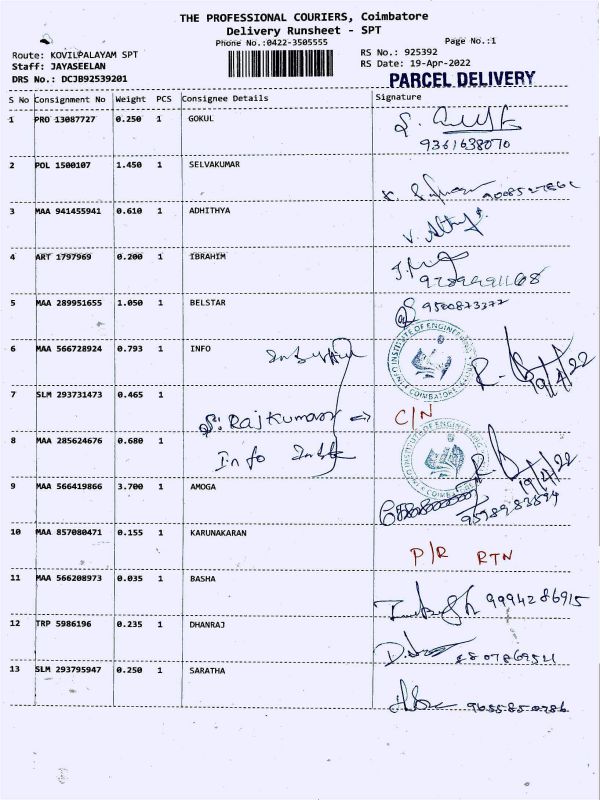 THE PROFESSIONAL COURIERS, Coimbatore
Delivery Runsheet - SPT
Phone No.:0422-3505555 Page No.:1
Route: KOVILPALAYAM SPT RS No.: 925392
Staff: JAYASEELAN RS Date: 19-Apr-2022
DRS No.: DCJB92539201 PARCEL DELIVERY
S No Consignment No Weight PCS Consignee Details Signature
1 PRO 13087727 0.250 1 GOKUL
9361638070
2 POL 1500107 1.450 1 SELVAKUMAR
3 MAA 941455941 0.610 1 ADHITHYA
4 ART 1797969 0.200 1 IBRAHIM
5 MAA 289951655 1.050 1 BELSTAR 9500873372
6 MAA 566728924 0.793 1 INFO
INSTITUTE OF ENGINEERING
COIMBATORE
19/4/22
7 SLM 293731473 0.465 1
S. Rajkumar C/N
8 MAA 285624676 0.680 1
Info
19/4/22
9 MAA 566419866 3.700 1 AMOGA
9598983594
10 MAA 857080471 0.155 1 KARUNAKARAN
P/R RTN
11 MAA 566208973 0.035 1 BASHA
9994286915
12 TRP 5986196 0.235 1 DHANRAJ
13 SLM 293795947 0.250 1 SARATHA
9655850786